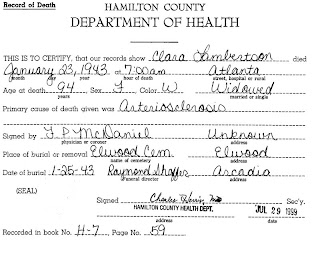 Record of Death
HAMILTON COUNTY
DEPARTMENT OF HEALTH
THIS IS TO CERTIFY, that our records show Clara Lambertson died
January 23, 1943 at 7:00am Atlanta
month day year hour of death street, hospital or rural
Age at death 94 Sex F Color W Widowed
years married or single
Primary cause of death given was Arteriosclerosis
Signed by F P McDaniel Unknown
physician or coroner address
Place of burial or removal Elwood Cem. Elwood
name of cemetery address
Date of burial 1-25-43 Raymond Shaffer Arcadia
funeral director address
(SEAL)
Signed Charles Harris MD Sec'y.
HAMILTON COUNTY HEALTH DEPT. JUL 29 1999
address date
Recorded in book No. H-7, Page No. 59